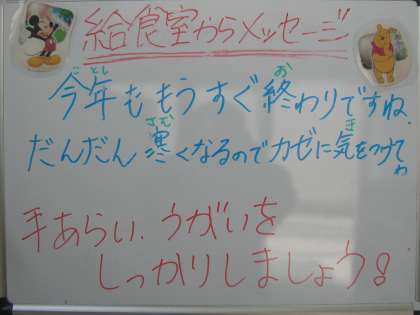 給食室からメッセージ
今年ももうすぐ終わりですね、
ことし
お
だんだん寒くなるのでカゼに気をつけてね
さむ
き
手あらい、うがいを
しっかりしましょう!